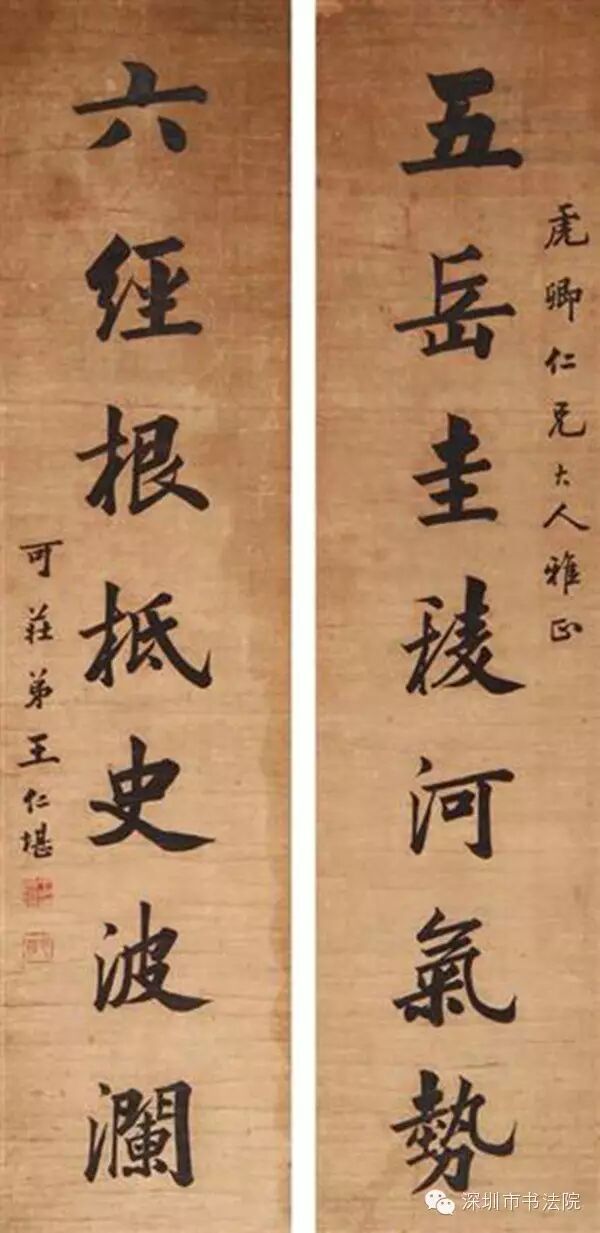 虎卿仁兄大人雅正
五岳圭稜河氣勢
六經根柢史波瀾
可莊弟王仁堪
深圳市书法院